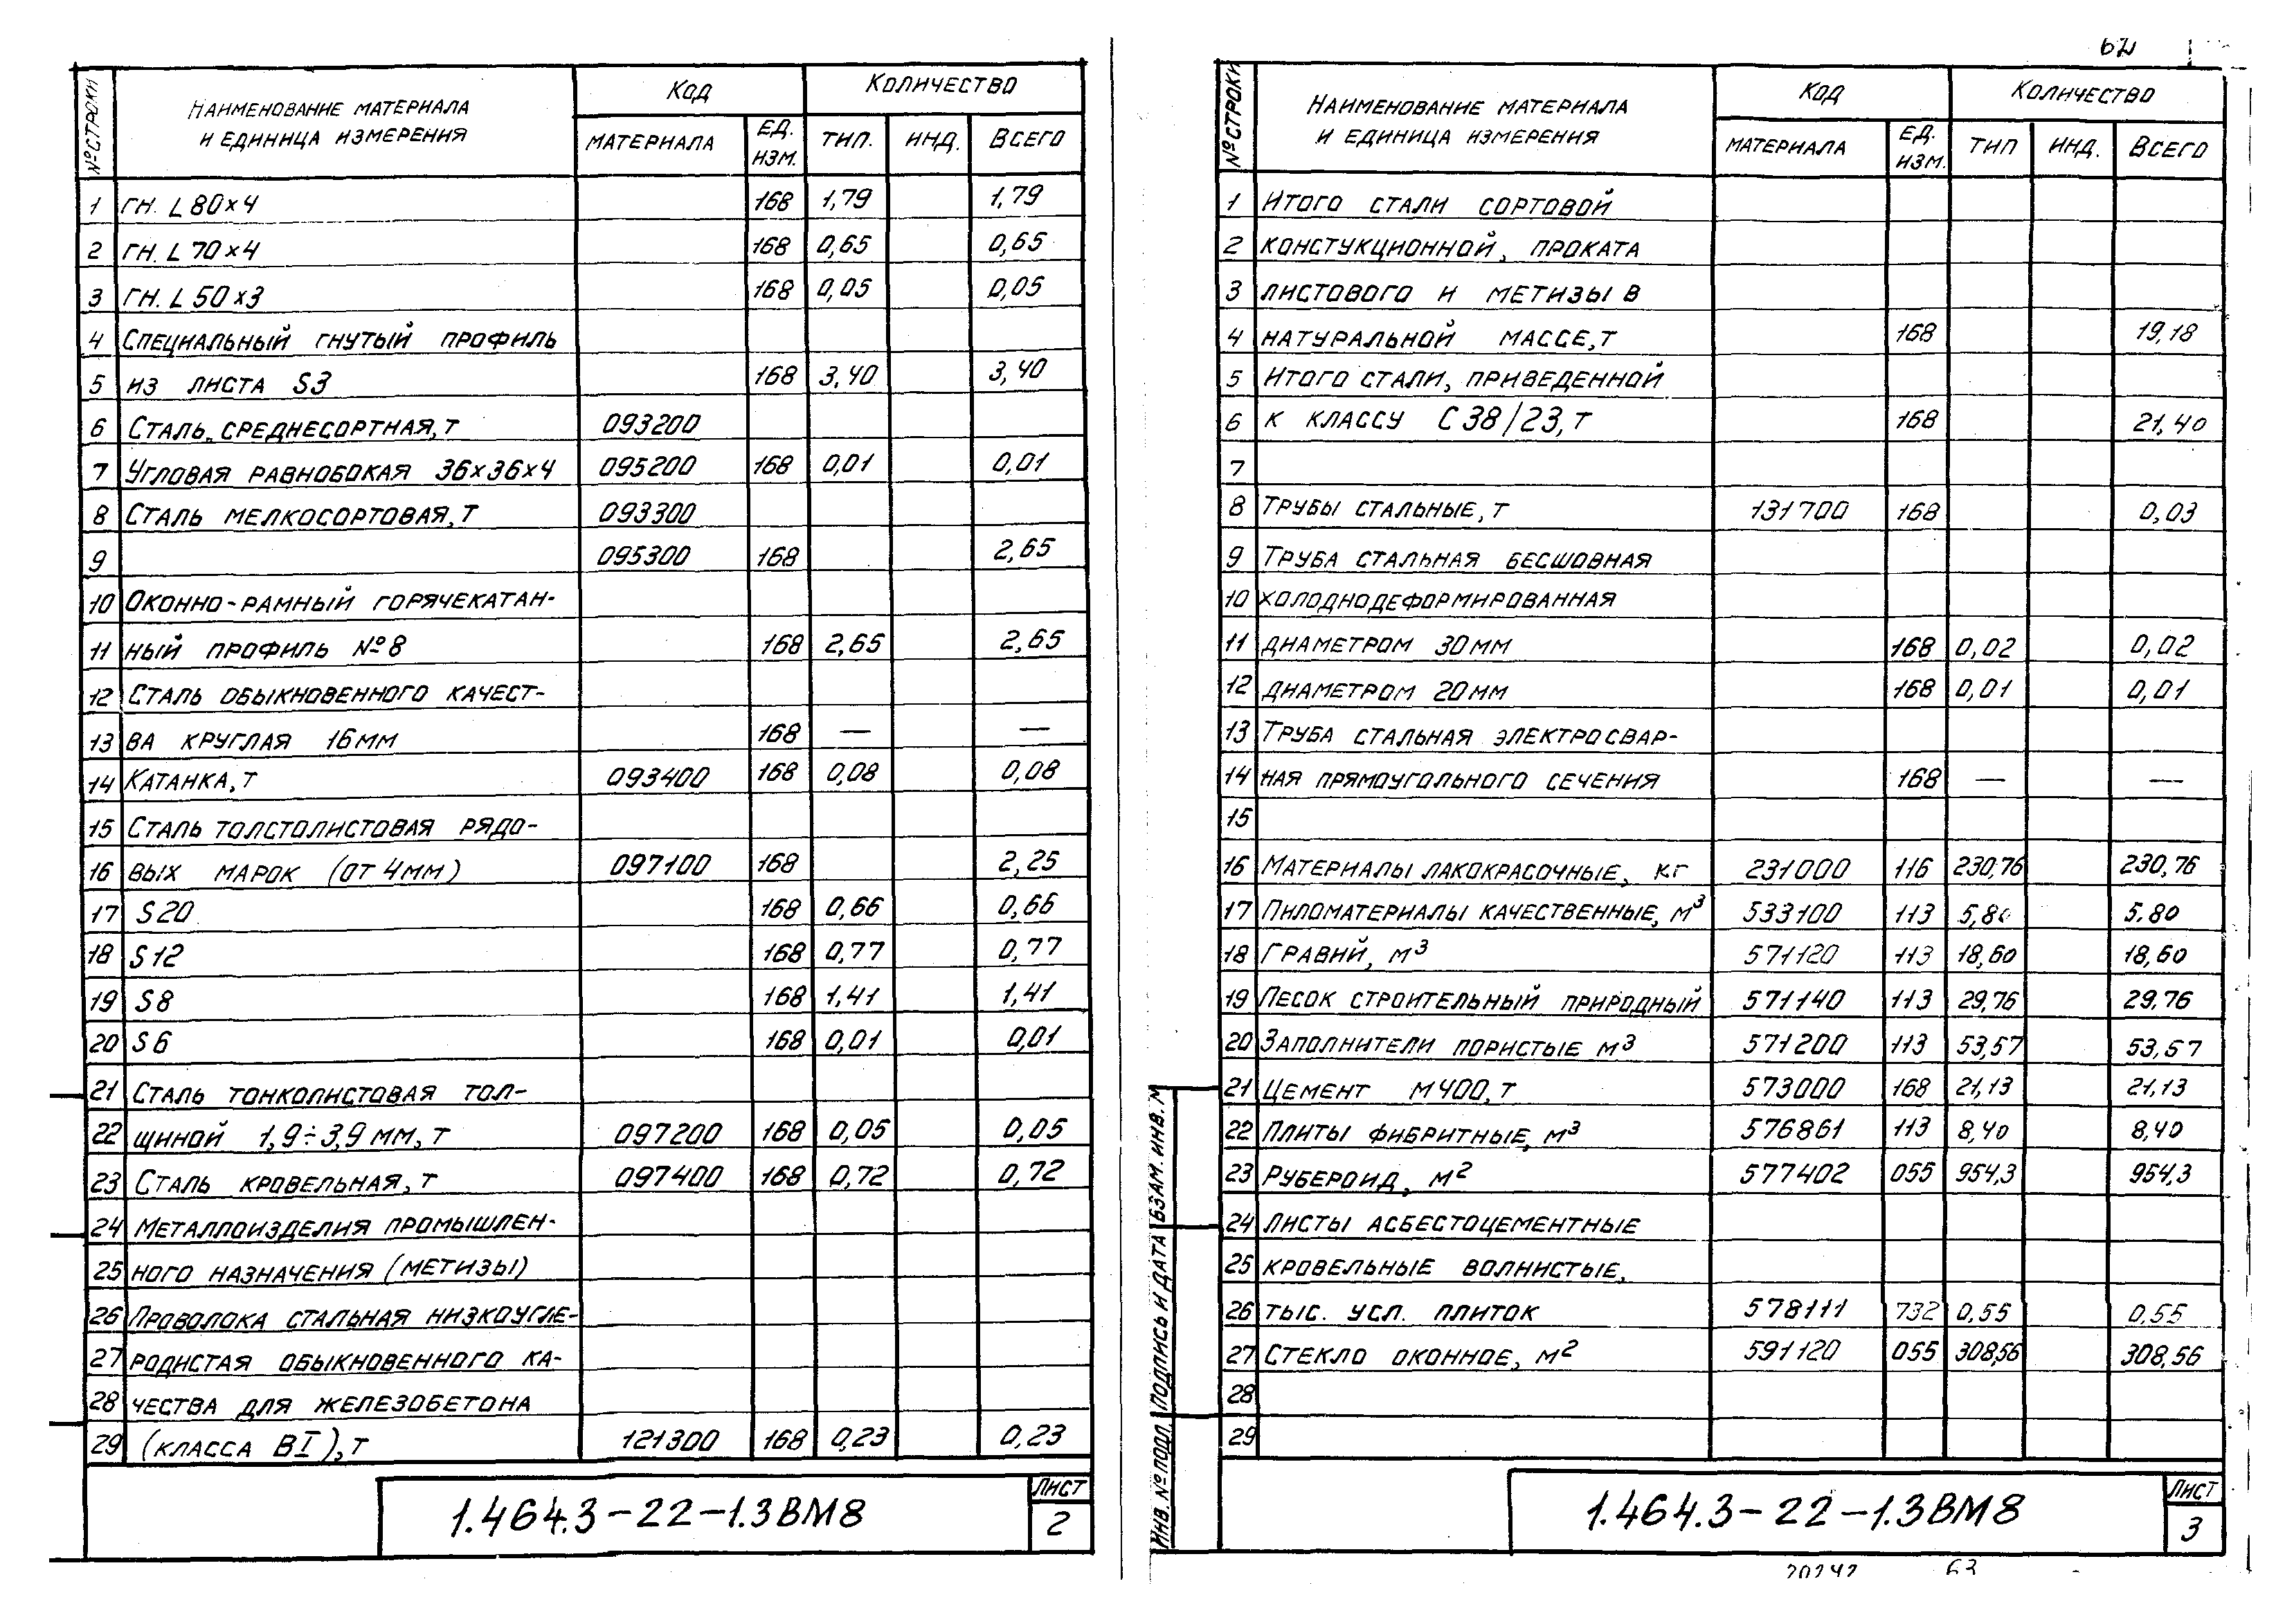 № СТРОКИ | НАИМЕНОВАНИЕ МАТЕРИАЛА И ЕДИНИЦА ИЗМЕРЕНИЯ | КОД | КОЛИЧЕСТВО
МАТЕРИАЛА | ЕД. ИЗМ. | ТИП. | ИНД. | ВСЕГО
1 ГН. L 80×4 168 1,79 1,79
2 ГН. L 70×4 168 0,65 0,65
3 ГН. L 50×3 168 0,05 0,05
4 СПЕЦИАЛЬНЫЙ ГНУТЫЙ ПРОФИЛЬ
5 ИЗ ЛИСТА S3 168 3,40 3,40
6 СТАЛЬ СРЕДНЕСОРТНАЯ, Т 093200
7 УГЛОВАЯ РАВНОБОКАЯ 36×36×4 095200 168 0,01 0,01
8 СТАЛЬ МЕЛКОСОРТОВАЯ, Т 093300
9 095300 168 2,65
10 ОКОННО-РАМНЫЙ ГОРЯЧЕКАТАН-
11 НЫЙ ПРОФИЛЬ №8 168 2,65 2,65
12 СТАЛЬ ОБЫКНОВЕННОГО КАЧЕСТ-
13 ВА КРУГЛАЯ 16 ММ 168 — —
14 КАТАНКА, Т 093400 168 0,08 0,08
15 СТАЛЬ ТОЛСТОЛИСТОВАЯ РЯДО-
16 ВЫХ МАРОК (ОТ 4 ММ) 097100 168 2,25
17 S20 168 0,66 0,66
18 S12 168 0,77 0,77
19 S8 168 1,41 1,41
20 S6 168 0,01 0,01
21 СТАЛЬ ТОНКОЛИСТОВАЯ ТОЛ-
22 ЩИНОЙ 1,9÷3,9 ММ, Т 097200 168 0,05 0,05
23 СТАЛЬ КРОВЕЛЬНАЯ, Т 097400 168 0,72 0,72
24 МЕТАЛЛОИЗДЕЛИЯ ПРОМЫШЛЕН-
25 НОГО НАЗНАЧЕНИЯ (МЕТИЗЫ)
26 ПРОВОЛОКА СТАЛЬНАЯ НИЗКОУГЛЕ-
27 РОДИСТАЯ ОБЫКНОВЕННОГО КА-
28 ЧЕСТВА ДЛЯ ЖЕЛЕЗОБЕТОНА
29 (КЛАССА ВI), Т 121300 168 0,23 0,23
1.464.3-22-1.3ВМ8 ЛИСТ 2
62
№ СТРОКИ | НАИМЕНОВАНИЕ МАТЕРИАЛА И ЕДИНИЦА ИЗМЕРЕНИЯ | КОД | КОЛИЧЕСТВО
МАТЕРИАЛА | ЕД. ИЗМ. | ТИП | ИНД. | ВСЕГО
1 ИТОГО СТАЛИ СОРТОВОЙ
2 КОНСТУКЦИОННОЙ, ПРОКАТА
3 ЛИСТОВОГО И МЕТИЗЫ В
4 НАТУРАЛЬНОЙ МАССЕ, Т 168 19,18
5 ИТОГО СТАЛИ, ПРИВЕДЕННОЙ
6 К КЛАССУ С 38/23, Т 168 21,40
7
8 ТРУБЫ СТАЛЬНЫЕ, Т 131700 168 0,03
9 ТРУБА СТАЛЬНАЯ БЕСШОВНАЯ
10 ХОЛОДНОДЕФОРМИРОВАННАЯ
11 ДИАМЕТРОМ 30 ММ 168 0,02 0,02
12 ДИАМЕТРОМ 20 ММ 168 0,01 0,01
13 ТРУБА СТАЛЬНАЯ ЭЛЕКТРОСВАР-
14 НАЯ ПРЯМОУГОЛЬНОГО СЕЧЕНИЯ 168 — —
15
16 МАТЕРИАЛЫ ЛАКОКРАСОЧНЫЕ, КГ 231000 116 230,76 230,76
17 ПИЛОМАТЕРИАЛЫ КАЧЕСТВЕННЫЕ, М³ 533100 113 5,80 5.80
18 ГРАВИЙ, М³ 571120 113 18,60 18,60
19 ПЕСОК СТРОИТЕЛЬНЫЙ ПРИРОДНЫЙ 571140 113 29,76 29,76
20 ЗАПОЛНИТЕЛИ ПОРИСТЫЕ М³ 571200 113 53,57 53,57
21 ЦЕМЕНТ М400, Т 573000 168 21,13 21,13
22 ПЛИТЫ ФИБРИТНЫЕ, М³ 576861 113 8,40 8,40
23 РУБЕРОИД, М² 577402 055 954,3 954,3
24 ЛИСТЫ АСБЕСТОЦЕМЕНТНЫЕ
25 КРОВЕЛЬНЫЕ ВОЛНИСТЫЕ,
26 ТЫС. УСЛ. ПЛИТОК 578111 732 0,55 0,55
27 СТЕКЛО ОКОННОЕ, М² 591120 055 308,56 308,56
28
29
ИНВ. № ПОДЛ. ПОДПИСЬ И ДАТА ВЗАМ. ИНВ. №
1.464.3-22-1.3ВМ8 ЛИСТ 3
20242 63